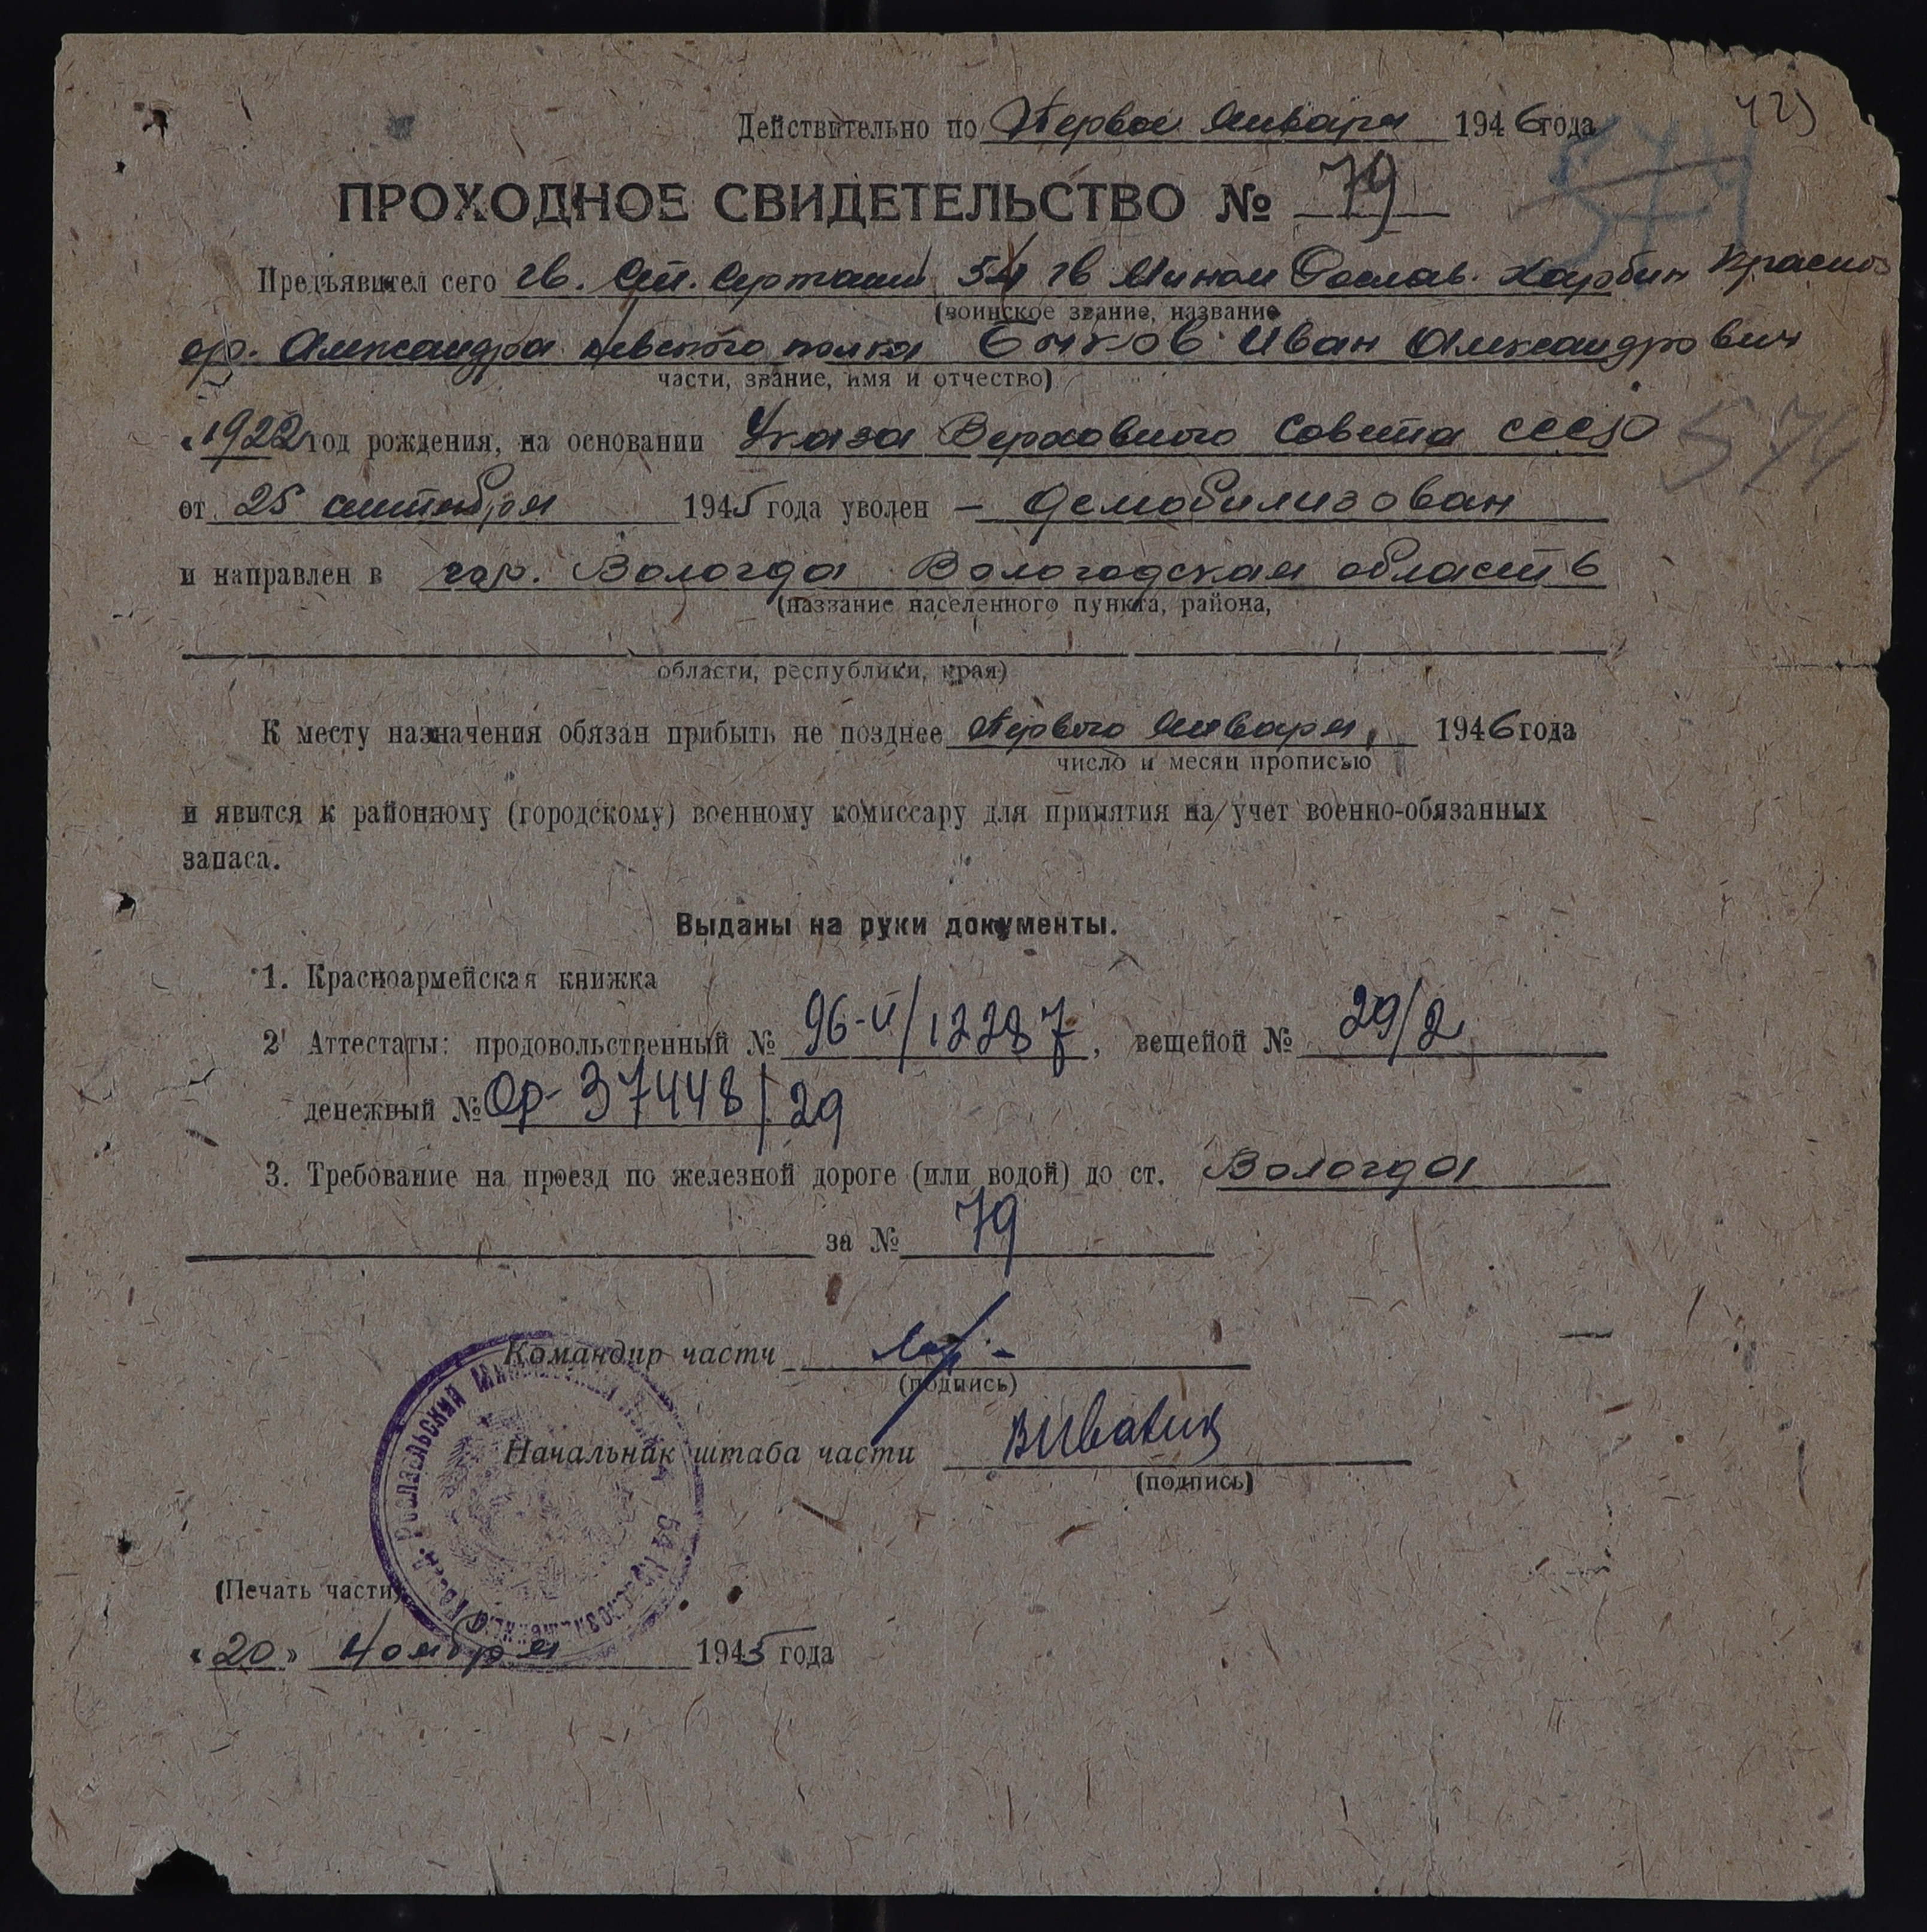 425
Действительно по Первое Января 1946 года
574
ПРОХОДНОЕ СВИДЕТЕЛЬСТВО № 79
Предъявител сего гв. Ст. Сержант 54 гв Мином Рослав. Харбин Красноз
(воинское звание, название
ор. Александра Невского полка Бычков Иван Александрович
части, звание, имя и отчество)
„1922 год рождения, на основании Указа Верховного Совета СССР
574
от 25 сентября 1945 года уволен — демобилизован
и направлен в гор. Вологда Вологодская область
(название населенного пункта, района,
области, республики, края)
К месту назначения обязан прибыть не позднее Первого Января, 1946 года
число и месяц прописью
и явится к районному (городскому) военному комиссару для принятия на учет военно-обязанных
запаса.
Выданы на руки документы.
1. Красноармейская книжка
2' Аттестаты: продовольственный № 96-и/12287, вещейой № 29/2
денежный № Ор-37448/29
3. Требование на проезд по железной дороге (или водой) до ст. Вологда
за № 79
Командир части
(подпись)
Начальник штаба части
(подпись)
Рославльский
54 Краснознаменный
(Печать части)
„20" Ноября 1945 года